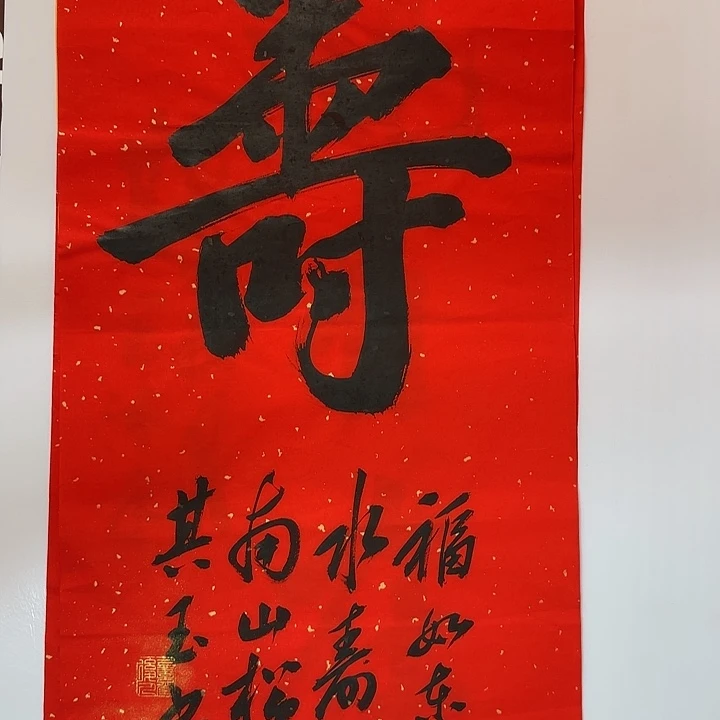 壽
福如东
水寿
南山松
其玉